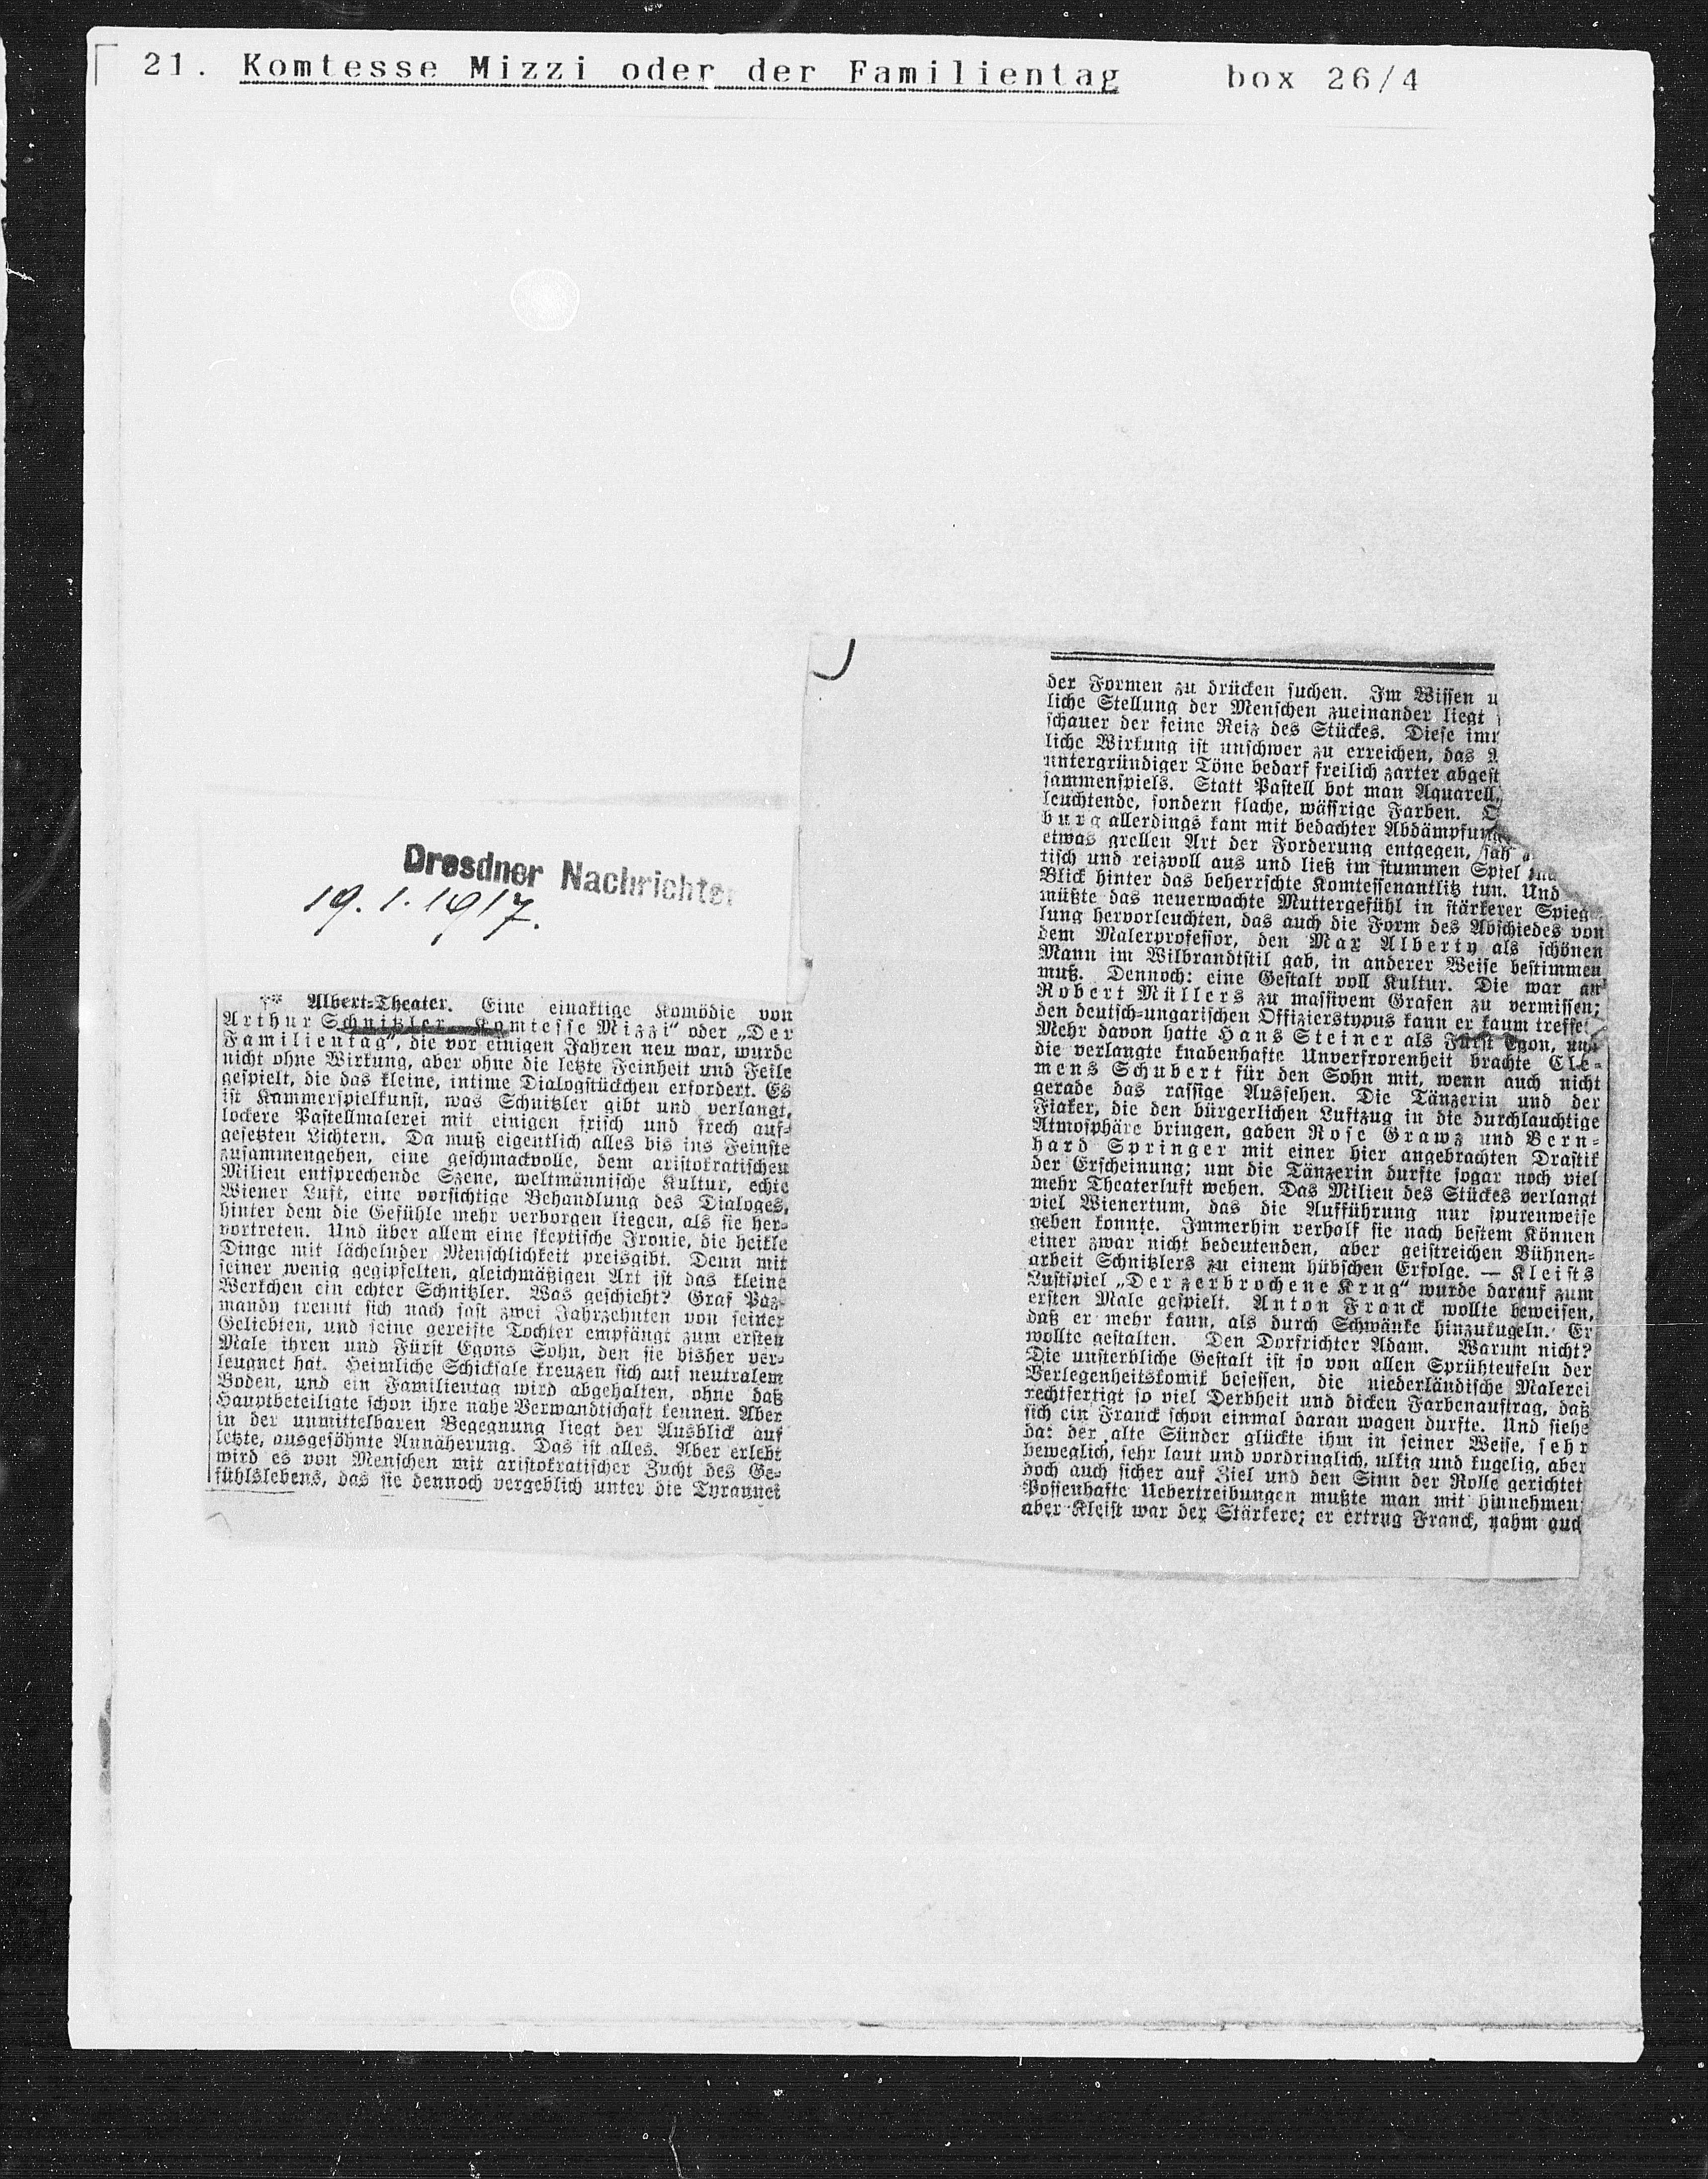 21. Komtesse Mizzi oder der Familientag box 26/4
Dresdner Nachrichten
19. 1. 1917.
** Albert-Theater. Eine einaktige Komödie von
Arthur Schnitzler „Komtesse Mizzi“ oder „Der
Familientag“, die vor einigen Jahren neu war, wurde
nicht ohne Wirkung, aber ohne die letzte Feinheit und Feile
gespielt, die das kleine, intime Dialogstückchen erfordert. Es
ist Kammerspielkunst, was Schnitzler gibt und verlangt,
lockere Pastellmalerei mit einigen frisch und frech auf-
gesetzten Lichtern. Da muß eigentlich alles bis ins Feinste
zusammengehen, eine geschmackvolle, dem aristokratischen
Milieu entsprechende Szene, weltmännische Kultur, echte
Wiener Luft, eine vorsichtige Behandlung des Dialoges,
hinter dem die Gefühle mehr verborgen liegen, als sie her-
vortreten. Und über allem eine skeptische Ironie, die heikle
Dinge mit lächelnder Menschlichkeit preisgibt. Denn mit
seiner wenig gegipfelten, gleichmäßigen Art ist das kleine
Werkchen ein echter Schnitzler. Was geschieht? Graf Paz-
mandy trennt sich nach fast zwei Jahrzehnten von seiner
Geliebten, und seine gereifte Tochter empfängt zum ersten
Male ihren und Fürst Egons Sohn, den sie bisher ver-
leugnet hat. Heimliche Schicksale kreuzen sich auf neutralem
Boden, und ein Familientag wird abgehalten, ohne daß
Hauptbeteiligte schon ihre nahe Verwandtschaft kennen. Aber
in der unmittelbaren Begegnung liegt der Ausblick auf
letzte, ausgesöhnte Annäherung. Das ist alles. Aber erlebt
wird es von Menschen mit aristokratischer Zucht des Ge-
fühlslebens, das sie dennoch vergeblich unter die Tyrannei
der Formen zu drücken suchen. Im Wissen u
liche Stellung der Menschen zueinander liegt
schauer der feine Reiz des Stückes. Diese
liche Wirkung ist unschwer zu erreichen, das
untergründiger Töne bedarf freilich zarter abgest
sammenspiels. Statt Pastell bot man Aquarell,
leuchtende, sondern flache, wässrige Farben.
burg allerdings kam mit bedachter Abdämpfung
etwas grellen Art der Forderung entgegen, sah
tisch und reizvoll aus und ließ im stummen Spiel
Blick hinter das beherrschte Komtessenantlitz tun. Und
müßte das neuerwachte Muttergefühl in stärkerer Spieg
lung hervorleuchten, das auch die Form des Abschiedes von
dem Malerprofessor, den Max Alberty als schönen
Mann im Wilbrandtstil gab, in anderer Weise bestimmen
muß. Dennoch: eine Gestalt voll Kultur. Die war an
Robert Müllers zu massivem Grafen zu vermissen;
den deutsch-ungarischen Offizierstypus kann er kaum treffe
Mehr davon hatte Hans Steiner als Fürst Egon, und
die verlangte knabenhafte Unverfrorenheit brachte Cle-
mens Schubert für den Sohn mit, wenn auch nicht
gerade das rassige Aussehen. Die Tänzerin und der
Fiaker, die den bürgerlichen Luftzug in die durchlauchtige
Atmosphäre bringen, gaben Rose Grawz und Bern-
hard Springer mit einer hier angebrachten Drastik
der Erscheinung; um die Tänzerin durfte sogar noch viel
mehr Theaterluft wehen. Das Milieu des Stückes verlangt
viel Wienertum, das die Aufführung nur spurenweise
geben konnte. Immerhin verhalf sie nach bestem Können
einer zwar nicht bedeutenden, aber geistreichen Bühnen-
arbeit Schnitzlers zu einem hübschen Erfolge. — Kleists
Lustspiel „Der zerbrochene Krug“ wurde darauf zum
ersten Male gespielt. Anton Franck wollte beweisen,
daß er mehr kann, als durch Schwänke hinzukugeln. Er
wollte gestalten. Den Dorfrichter Adam. Warum nicht?
Die unsterbliche Gestalt ist so von allen Sprühteufeln der
Verlegenheitskomik besessen, die niederländische Malerei
rechtfertigt so viel Derbheit und dicken Farbenauftrag, daß
sich ein Franck schon einmal daran wagen durfte. Und siehe
da: der alte Sünder glückte ihm in seiner Weise, sehr
beweglich, sehr laut und vordringlich, ulkig und kugelig, aber
doch auch sicher auf Ziel und den Sinn der Rolle gerichtet
Possenhafte Uebertreibungen mußte man mit hinnehmen
aber Kleist war der Stärkere; er ertrug Franck, nahm auch